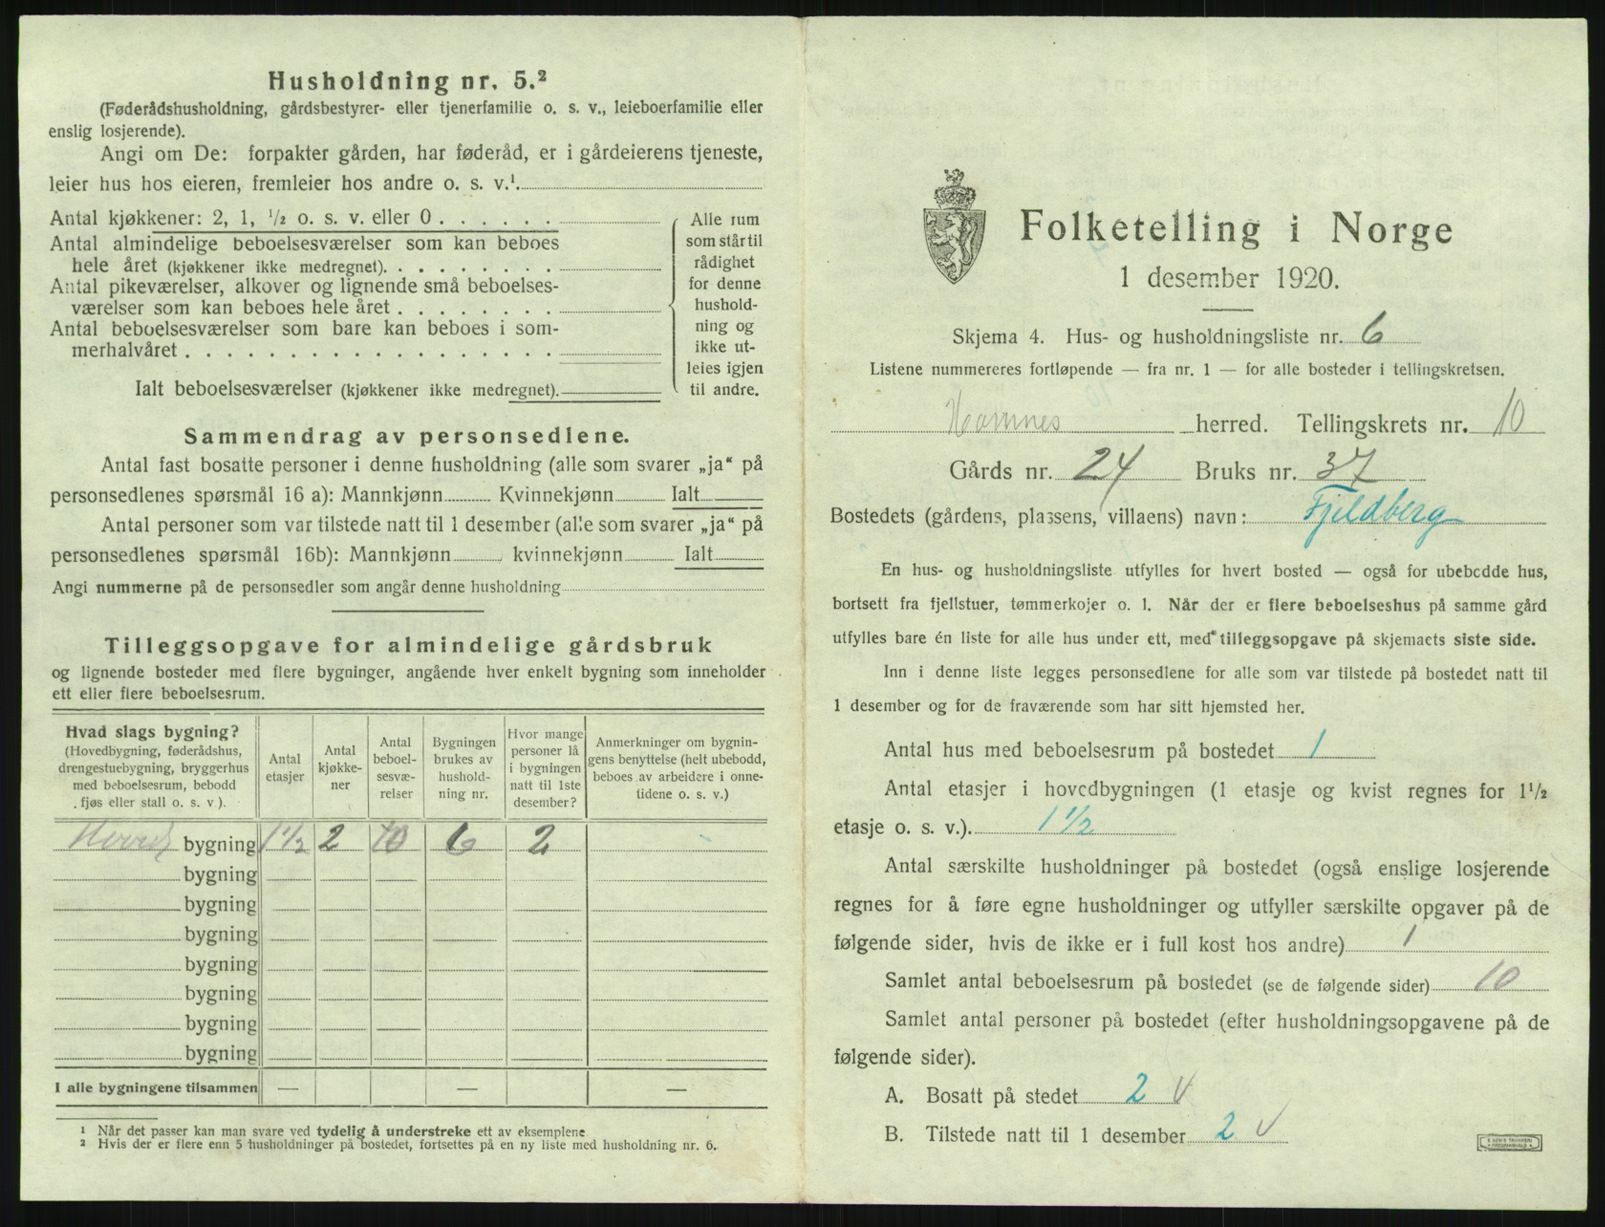 Husholdning nr. 5.²
(Føderådshusholdning, gårdsbestyrer- eller tjenerfamilie o. s. v., leieboerfamilie eller
enslig losjerende).
Angi om De: forpakter gården, har føderåd, er i gårdeierens tjeneste,
leier hus hos eieren, fremleier hos andre o. s. v.¹
Antal kjøkkener: 2, 1, ½ o. s. v. eller 0
Antal almindelige beboelsesværelser som kan beboes
hele året (kjøkkener ikke medregnet).
Antal pikeværelser, alkover og lignende små beboelses-
værelser som kan beboes hele året
Antal beboelsesværelser som bare kan beboes i som-
merhalvåret
Ialt beboelsesværelser (kjøkkener ikke medregnet).
Alle rum
som står til
rådighet
for denne
hushold-
ning og
ikke ut-
leies igjen
til andre.
Sammendrag av personsedlene.
Antal fast bosatte personer i denne husholdning (alle som svarer „ja“ på
personsedlenes spørsmål 16 a): Mannkjønn Kvinnekjønn Ialt
Antal personer som var tilstede natt til 1 desember (alle som svarer „ja“ på
personsedlenes spørsmål 16b): Mannkjønn kvinnekjønn Ialt
Angi nummerne på de personsedler som angår denne husholdning
Tilleggsopgave for almindelige gårdsbruk
og lignende bosteder med flere bygninger, angående hver enkelt bygning som inneholder
ett eller flere beboelsesrum.
Hvad slags bygning?
(Hovedbygning, føderådshus,
drengestuebygning, bryggerhus
med beboelsesrum, bebodd
fjøs eller stall o. s. v ).
Antal
etasjer
Antal
kjøkke-
ner
Antal
beboel-
sesvæ-
relser
Bygningen
brukes av
hushold-
ning nr.
Hvor mange
personer lå
i bygningen
natt til 1ste
desember?
Anmerkninger om bygnin-
gens benyttelse (helt ubebodd,
beboes av arbeidere i onne-
tidene o. s. v.)
Hoved bygning 1½ 2 10 6 2
bygning
bygning
bygning
bygning
bygning
bygning
bygning
I alle bygningene tilsammen — — —
¹ Når det passer kan man svare ved tydelig å understreke ett av eksemplene.
² Hvis der er flere enn 5 husholdninger på bostedet, fortsettes på en ny liste med husholdning nr. 6.
Folketelling i Norge
1 desember 1920.
Skjema 4. Hus- og husholdningsliste nr. 6
Listene nummereres fortløpende — fra nr. 1 — for alle bosteder i tellingskretsen.
herred. Tellingskrets nr. 10
Gårds nr. 24 Bruks nr. 37
Bostedets (gårdens, plassens, villaens) navn: Fjeldberg
En hus- og husholdningsliste utfylles for hvert bosted — også for ubebodde hus,
bortsett fra fjellstuer, tømmerkojer o. l. Når der er flere beboelseshus på samme gård
utfylles bare én liste for alle hus under ett, med tilleggsopgave på skjemaets siste side.
Inn i denne liste legges personsedlene for alle som var tilstede på bostedet natt til
1 desember og for de fraværende som har sitt hjemsted her.
Antal hus med beboelsesrum på bostedet 1
Antal etasjer i hovedbygningen (1 etasje og kvist regnes for 1½
etasje o. s. v.). 1½
Antal særskilte husholdninger på bostedet (også enslige losjerende
regnes for å føre egne husholdninger og utfyller særskilte opgaver på de
følgende sider, hvis de ikke er i full kost hos andre) 1
Samlet antal beboelsesrum på bostedet (se de følgende sider) 10
Samlet antal personer på bostedet (efter husholdningsopgavene på de
følgende sider).
A. Bosatt på stedet 2 V
B. Tilstede natt til 1 desember 2 V